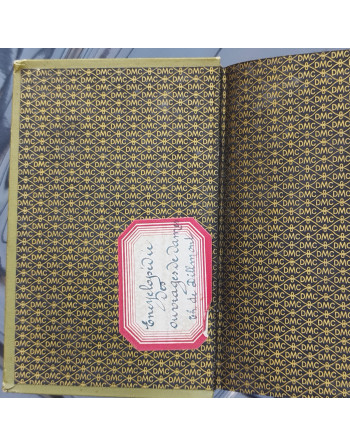 Encyclopédie
des
ouvrages de Dame
Th de Dillmont
DMC